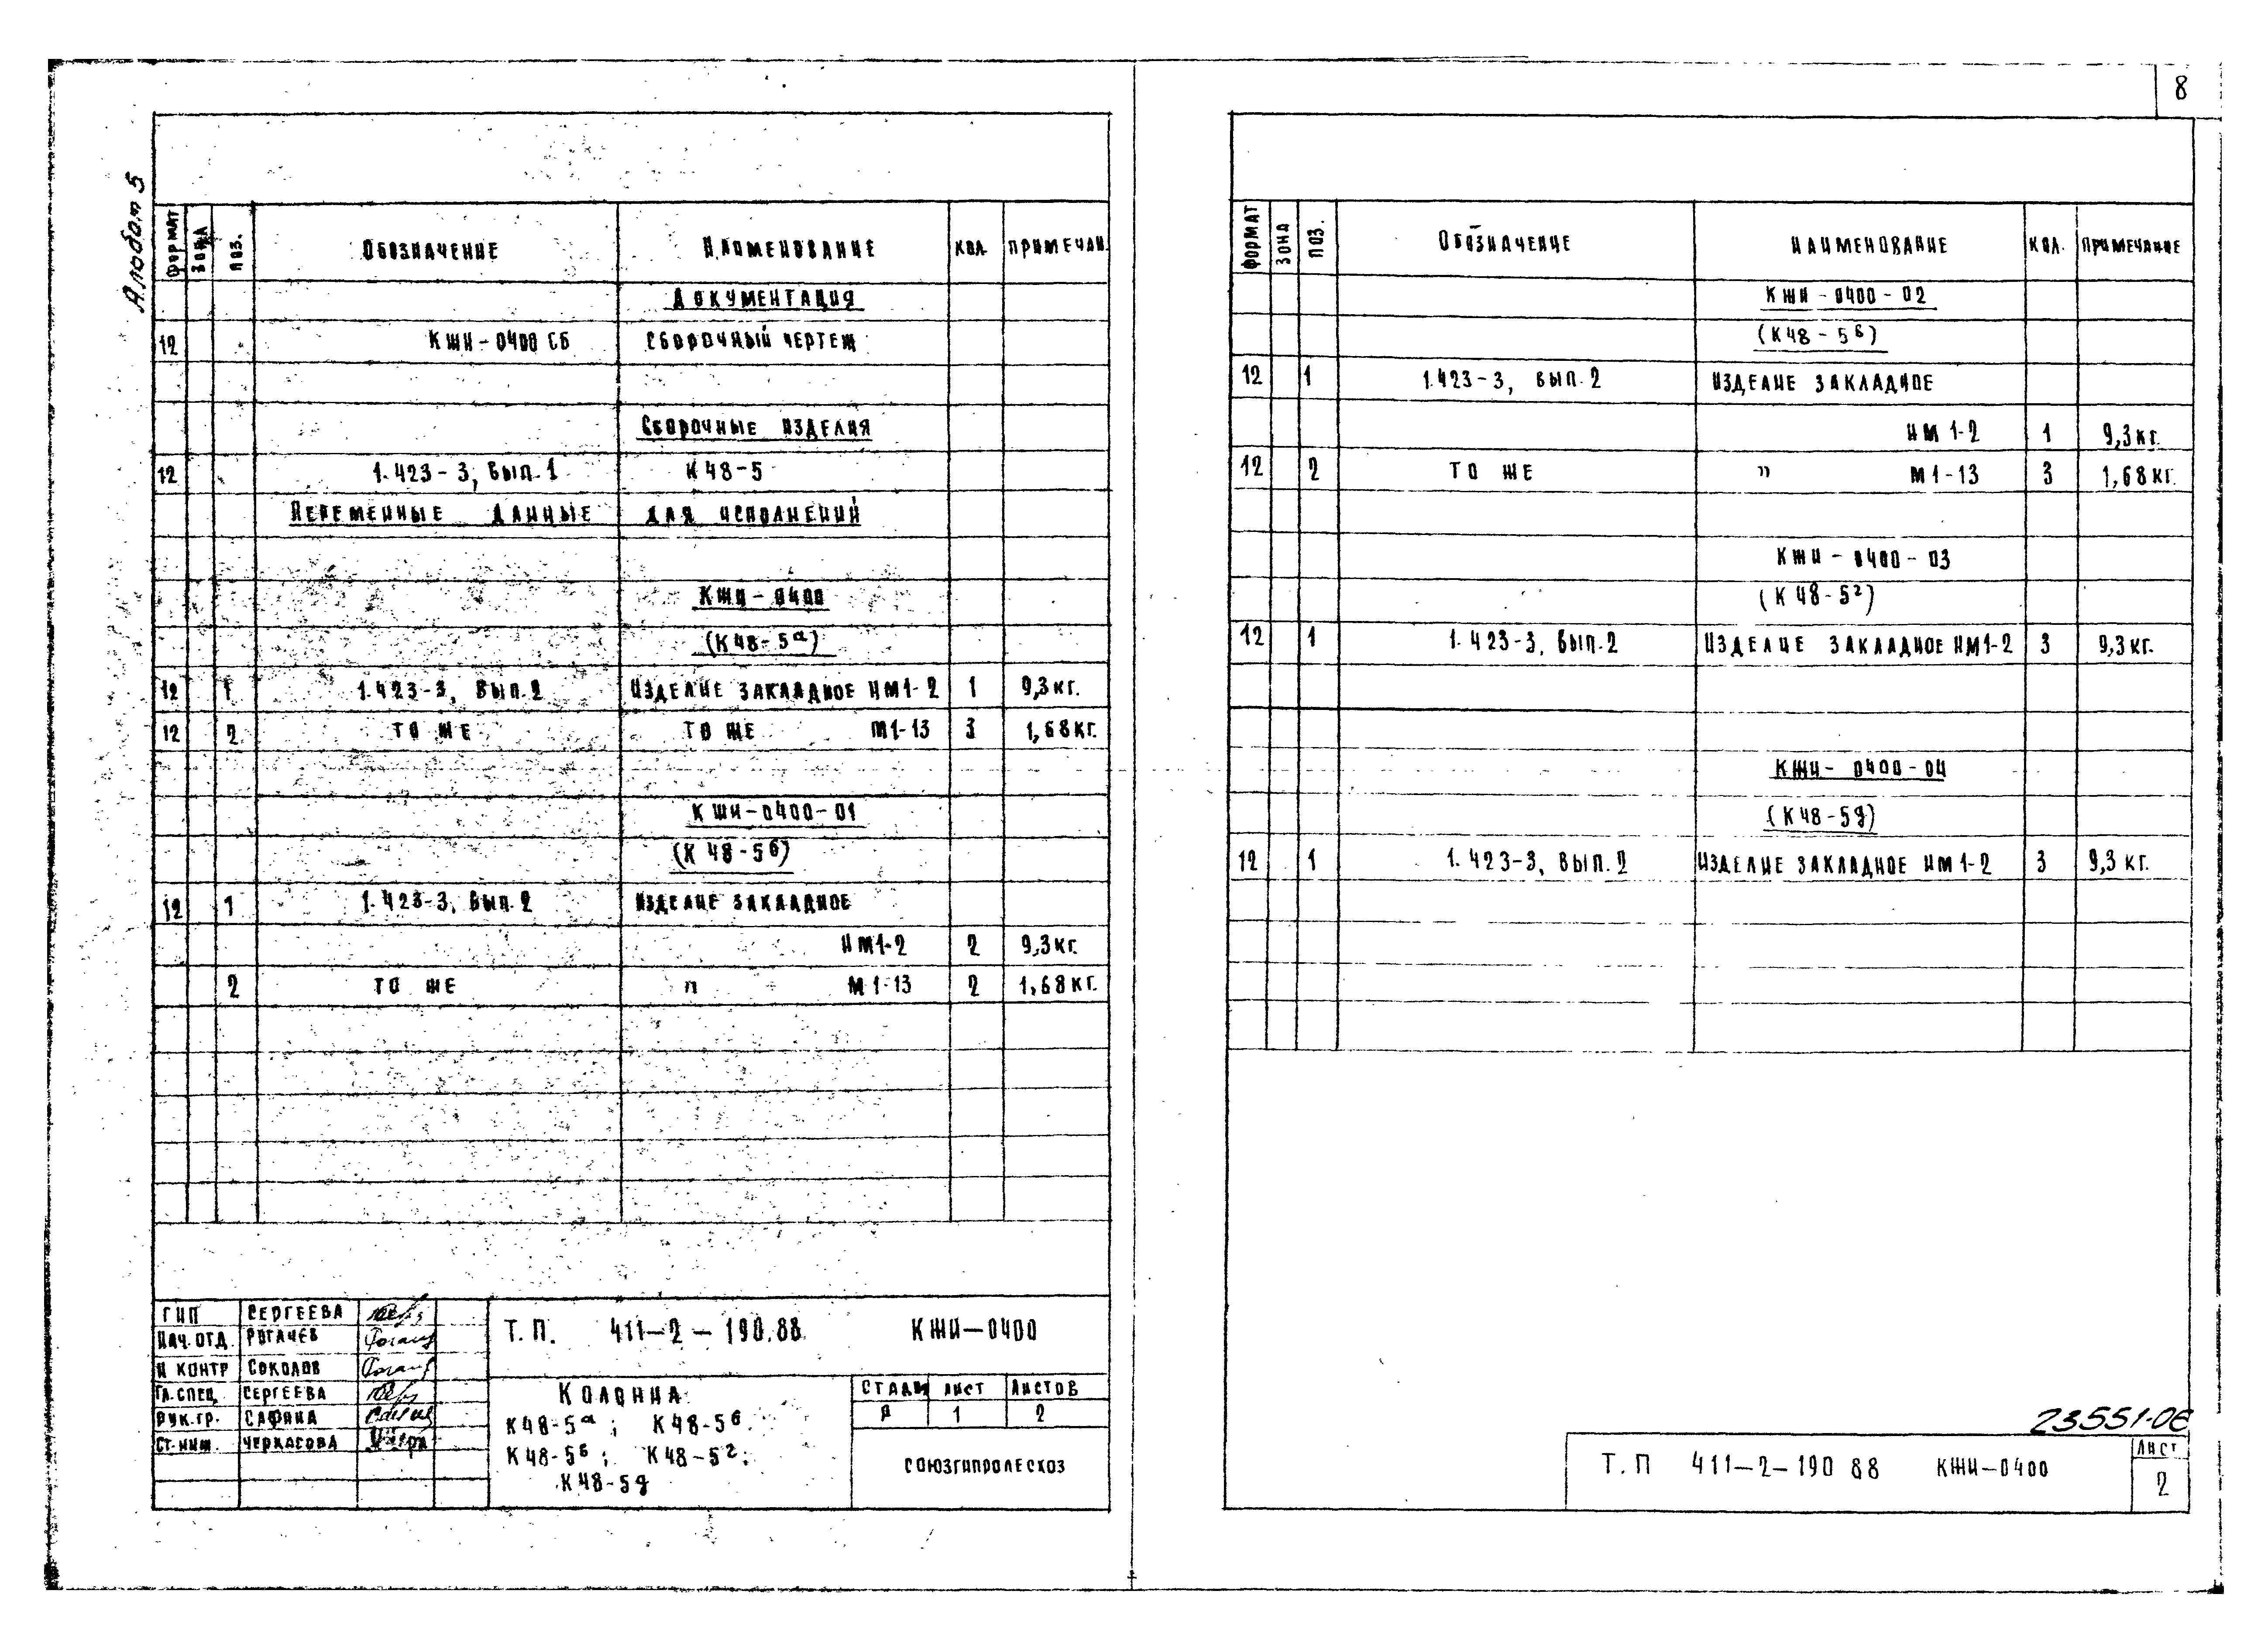 8
Альбом 5
ФОРМАТ ЗОНА ПОЗ. ОБОЗНАЧЕНИЕ НАИМЕНОВАНИЕ КОЛ. ПРИМЕЧАН.
ДОКУМЕНТАЦИЯ
12 КЖИ-0400 СБ СБОРОЧНЫЙ ЧЕРТЕЖ
СБОРОЧНЫЕ ИЗДЕЛИЯ
12 1.423-3, ВЫП.1 К48-5
ПЕРЕМЕННЫЕ ДАННЫЕ ДЛЯ ИСПОЛНЕНИЙ
КЖИ-0400
(К48-5а)
12 1 1.423-3, ВЫП.2 ИЗДЕЛИЕ ЗАКЛАДНОЕ НМ1-2 1 9,3 КГ.
12 2 ТО ЖЕ ТО ЖЕ М1-13 3 1,68 КГ.
КЖИ-0400-01
(К48-5б)
12 1 1.423-3, ВЫП.2 ИЗДЕЛИЕ ЗАКЛАДНОЕ
НМ1-2 2 9,3 КГ.
2 ТО ЖЕ " М1-13 2 1,68 КГ.
ГИП СЕРГЕЕВА
НАЧ.ОТД. РОГАЧЕВ
Н КОНТР СОКОЛОВ
ГЛ.СПЕЦ. СЕРГЕЕВА
РУК.ГР. САФИНА
СТ.ИНЖ. ЧЕРКАСОВА
Т.П. 411-2-190.88 КЖИ-0400
КОЛОННА
К48-5а; К48-5б
К48-5в; К48-5г;
К48-5д
СТАДИ ЛИСТ ЛИСТОВ
Р 1 2
СОЮЗГИПРОЛЕСХОЗ
ФОРМАТ ЗОНА ПОЗ. ОБОЗНАЧЕНИЕ НАИМЕНОВАНИЕ КОЛ. ПРИМЕЧАНИЕ
КЖИ-0400-02
(К48-5в)
12 1 1.423-3, ВЫП.2 ИЗДЕЛИЕ ЗАКЛАДНОЕ
НМ1-2 1 9,3 КГ.
12 2 ТО ЖЕ " М1-13 3 1,68 КГ.
КЖИ-0400-03
(К48-5г)
12 1 1.423-3, ВЫП.2 ИЗДЕЛИЕ ЗАКЛАДНОЕ НМ1-2 3 9,3 КГ.
КЖИ-0400-04
(К48-5д)
12 1 1.423-3, ВЫП.2 ИЗДЕЛИЕ ЗАКЛАДНОЕ НМ1-2 3 9,3 КГ.
23551-06
Т.П 411-2-190 88 КЖИ-0400
ЛИСТ
2